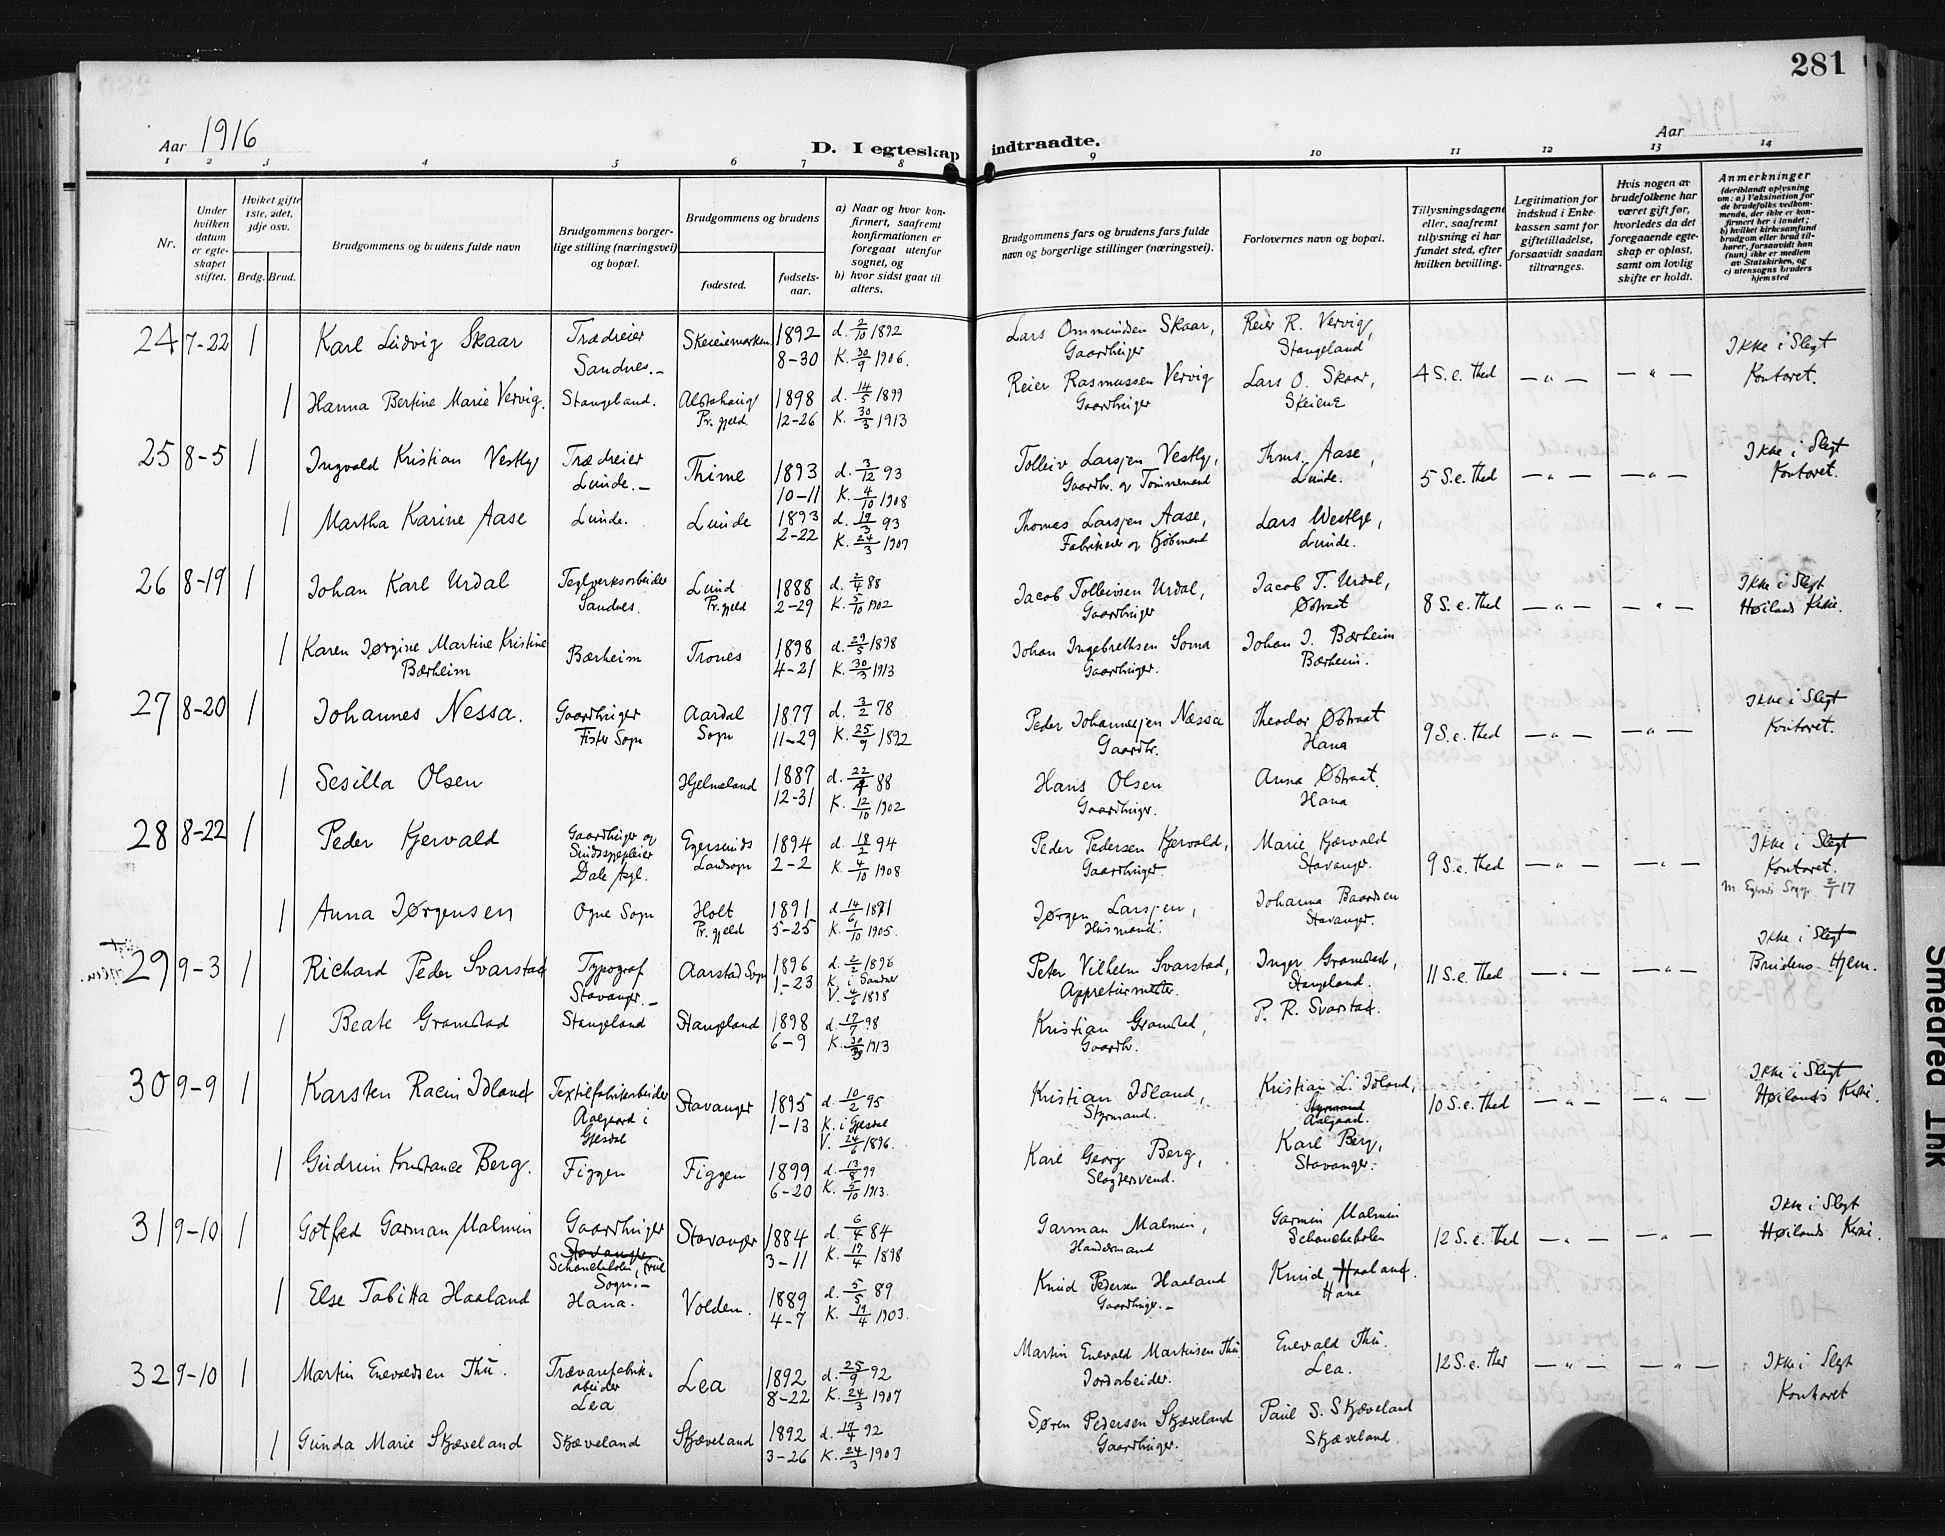 281
Aar 1916
Aar
D. I egteskap indtraadte.
1 2 3 4 5 6 7 8 9 10 11 12 13 14
Nr.
Under hvilken datum er egteskapet stiftet.
Hviket gifte 1ste, 2det, 3dje osv.
Brdg. Brud.
Brudgommens og brudens fulde navn
Brudgommens borgerlige stilling (næringsvei) og bopæl.
Brudgommens og brudens
fødested.
fødselsaar.
a) Naar og hvor konfirmert, saafremt konfirmationen er foregaat utenfor sognet, og
b) hvor sidst gaat til alters.
Brudgommens fars og brudens fars fulde navn og borgerlige stillinger (næringsvei).
Forlovernes navn og bopæl.
Tillysningsdagene eller, saafremt tillysning ei har fundet sted, efter hvilken bevilling.
Legitimation for indskud i Enkekassen samt for giftetilladelse, forsaavidt saadan tiltrænges.
Hvis nogen av brudefolkene har været gift før, hvorledes da det foregaaende egteskap er opløst, samt om lovlig skifte er holdt.
Anmerkninger
(deriblandt oplysning om: a) Vaksination for de brudefolks vedkommende, der ikke er konfirmert her i landet; b) hvilket kirkesamfund brudgom eller brud tilhører, forsaavidt han (hun) ikke er medlem av Statskirken, og c) utensogns bruders hjemsted
24 7-22 1 Karl Ludvig Skaar Trædreier Sandnes. Skeiemarken 1892 8-30 d. 2/10 1892 K. 30/9 1906. Lars Ommundsen Skaar, Gaardbruger Reier R. Vervig, Stangeland 4 S. e. Thed — " — — " — Ikke i Slegt Kontoret.
1 Hanna Bertine Marie Vervig. Stangeland. Alstahaug Pr.gjeld 1898 12-26 d. 14/5 1899 K. 30/3 1913 Reier Rasmussen Vervig Gaardbruger Lars O. Skaar, Skeiene
25 8-5 1 Ingvald Kristian Vestly Trædreier Lunde. Thime 1893 10-11 d. 3/12 93 K. 4/10 1908 Tolleiv Larsen Vestly, Gaardbr. og Tømmermand Thms. Aase, Lunde. 5 S. e. Thed — " — — " — Ikke i Slegt Kontoret.
1 Martha Karine Aase Lunde. Lunde 1893 2-22 d. 19/3 93 K. 24/3 1907 Thomas Larsen Aase, Fabrikeier og Kjøbmand Lars Westlye, Lunde.
26 8-19 1 Johan Karl Urdal Teglverksarbeider Sandnes. Lund Pr.gjeld 1888 2-29 d. 2/4 88 K. 5/10 1902 Jacob Tolleivsen Urdal, Gaardbruger Jacob T. Urdal, Østraat 8 S. e. Thed — " — — " — Ikke i Slegt Høilands Kirke.
1 Karen Jørgine Martine Kristine Bærheim Bærheim Trones 1898 4-21 d. 29/5 1898 K. 30/3 1913 Johan Ingebrethsen Soma Gaardbruger. Johan I. Bærheim Bærheim.
27 8-20 1 Johannes Nessa. Gaardbruger Fister Sogn Aardal Sogn 1877 11-29 d. 3/2 78 K. 25/9 1892 Peder Johannesen Næssa Gaardbr. Theodor Østraat Hana 9 S. e. Thed — " — — " — Ikke i Slegt Kontoret.
1 Sesilla Olsen Hjelmeland 1887 12-31 d. 22/4 88 K. 12/10 1902 Hans Olsen Gaardbruger. Anna Østraat. Hana
28 8-22 1 Peder Kjervald Gaardbruger og Sindssygepleier Dale Asyl. Egersunds Landsogn 1894 2-2 d. 18/2 94 K. 4/10 1908 Peder Pedersen Kjervald, Gaardbruger. Marie Kjærvald Stavanger. 9 S. e. Thed — " — — " — Ikke i Slegt Kontoret.
1 Anna Jørgensen Ogne Sogn Holt Pr.gjeld 1891 5-25 d. 14/6 1891 K. 1/10 1905. Jørgen Larsen, Husmand. Johanna Baardsen Stavanger.
29 9-3 1 Richard Peder Svarstad Typograf Stavanger. Aarstad Sogn 1896 1-23 d. 2/2 1896 K. i Sandnes V. 4/6 1898 Peter Vilhelm Svarstad, Appreturmester. Inger Gramstad, Stangeland. 11 S. e. Thed — " — — " — Ikke i Slegt Brudens Hjem.
1 Beate Gramstad Stangeland Stangeland 1898 6-9 d. 17/7 98 K. 30/3 1913 Kristian Gramstad, Gaardbr. P. R. Svarstad.
30 9-9 1 Karsten Racin Idland Textilfabrikarbeider Aalgaard i Gjesdal Stavanger 1895 1-13 d. 10/2 95 K. i Gjesdal V. 24/6 1896. Kristian Idland, Styrmand. Kristian L. Idland, Styrmand Aalgaard. 10 S. e. Thed — " — — " — Ikke i Slegt Høilands Kirke.
1 Gudrun Konstance Berg. Figgen Figgen 1899 6-20 d. 13/8 99 K. 5/10 1913. Karl Georg Berg, Slagtersvend. Karl Berg, Stavanger.
31 9-10 1 Gotfred Garman Malmin Gaardbruger Stavanger Schancheholen, Frue Sogn. Stavanger 1884 3-11 d. 6/4 84 K. 17/4 1898 Garman Malmin, Handelsmand Garmin Malmin Schancheholen 12 S. e. Thed — " — — " — Ikke i Slegt Høilands Kirke.
1 Else Tabitta Haaland Hana. Volden. 1889 4-7 d. 5/5 89 K. 19/4 1903. Knud Pedersen Haaland Gaardbruger. Knud Haaland. Hana
32 9-10 1 Martin Enevaldsen Thu. Trævarefabrik-arbeider Lea Lea 1892 8-22 d. 25/9 92 K. 24/3 1907 Martin Enevald Martinsen Thu. Jordarbeider. Enevald Thu. Lea. 12 S. e. Ther — " — — " — Ikke i Slegt Kontoret
1 Gunda Marie Skjæveland Skjæveland Skjæveland 1892 3-26 d. 17/4 92 K. 24/3 1907 Søren Pedersen Skjæveland Gaardbruger. Paul S. Skjæveland Skjæveland
Smeared Ink